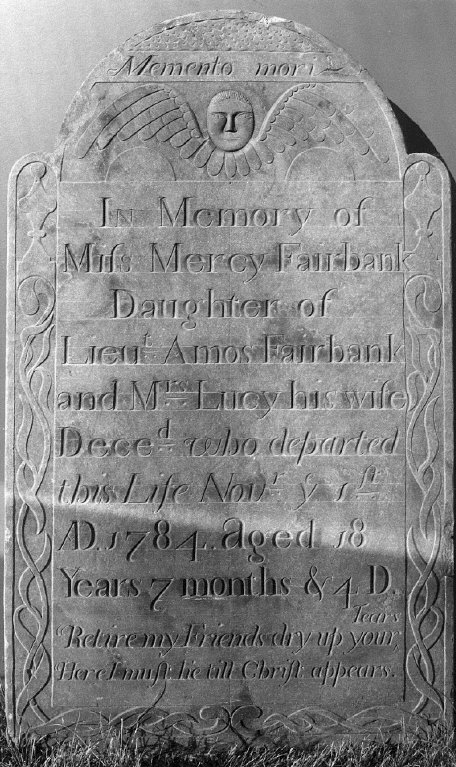 Memento mori
In Memory of
Miſs Mercy Fairbank
Daughter of
Lieut. Amos Fairbank
and Mrs. Lucy his wife
Deced. who departed
this Life Novr. ye 1ſt.
AD. 1784. aged 18
Years 7 months & 4 D.
Retire my Friends dry up your Tears
Here I muſt lie till Chriſt appears.